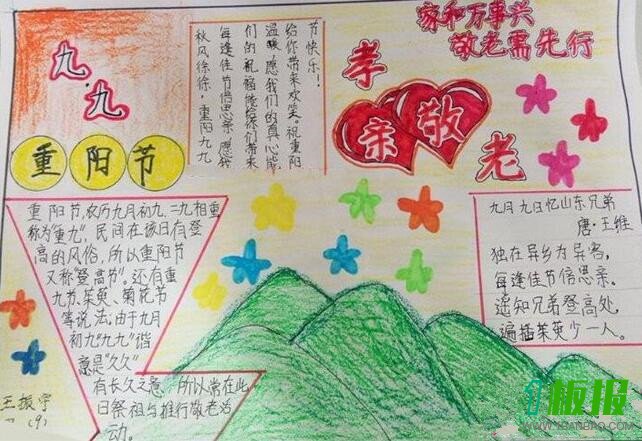 九·九
重阳节
秋风徐徐·重阳九九
每逢佳节倍思亲，愿我
们的祝福能给你们带来
温暖，愿我们的真心能
给你带来欢笑。祝重阳
节快乐！
家和万事兴
敬老需先行
孝
亲
敬
老
重阳节,农历九月初九,二九相重
称为"重九",民间在该日有登
高的风俗,所以重阳节
又称"登高节"。还有重
九节、茱萸、菊花节
等说法,由于九月
初九"九九"谐
意是"久久"
有长久之意,所以常在此
日祭祖与推行敬老活
动.
九月九日忆山东兄弟
唐·王维
独在异乡为异客,
每逢佳节倍思亲.
遥知兄弟登高处,
遍插茱萸少一人.
王振宇
一(9)
1板报
WWW.1BANBAO.COM